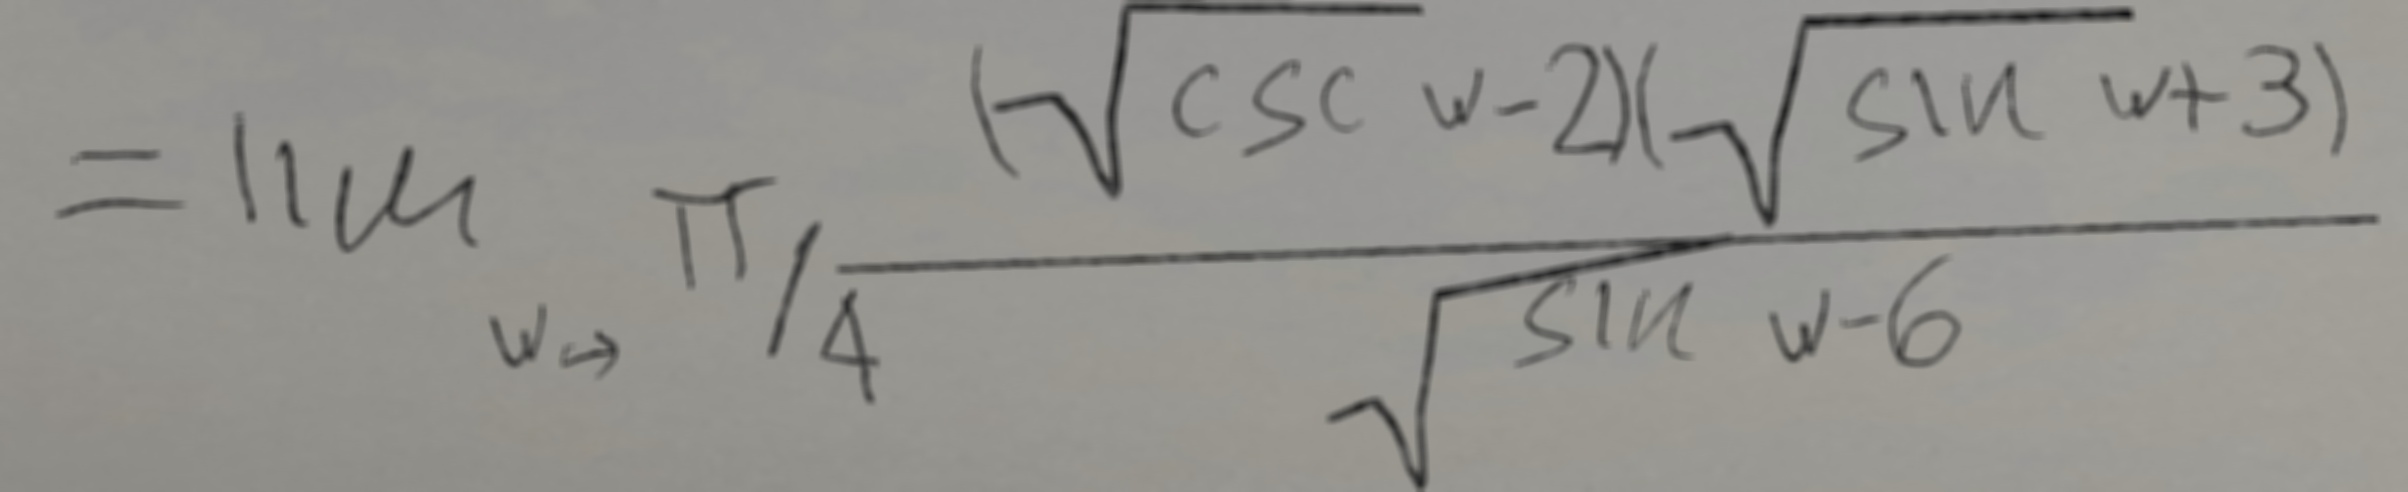 = lim_{w→π/4} \frac{(\sqrt{csc w}-2)(\sqrt{sin w}+3)}{\sqrt{sin w}-6}